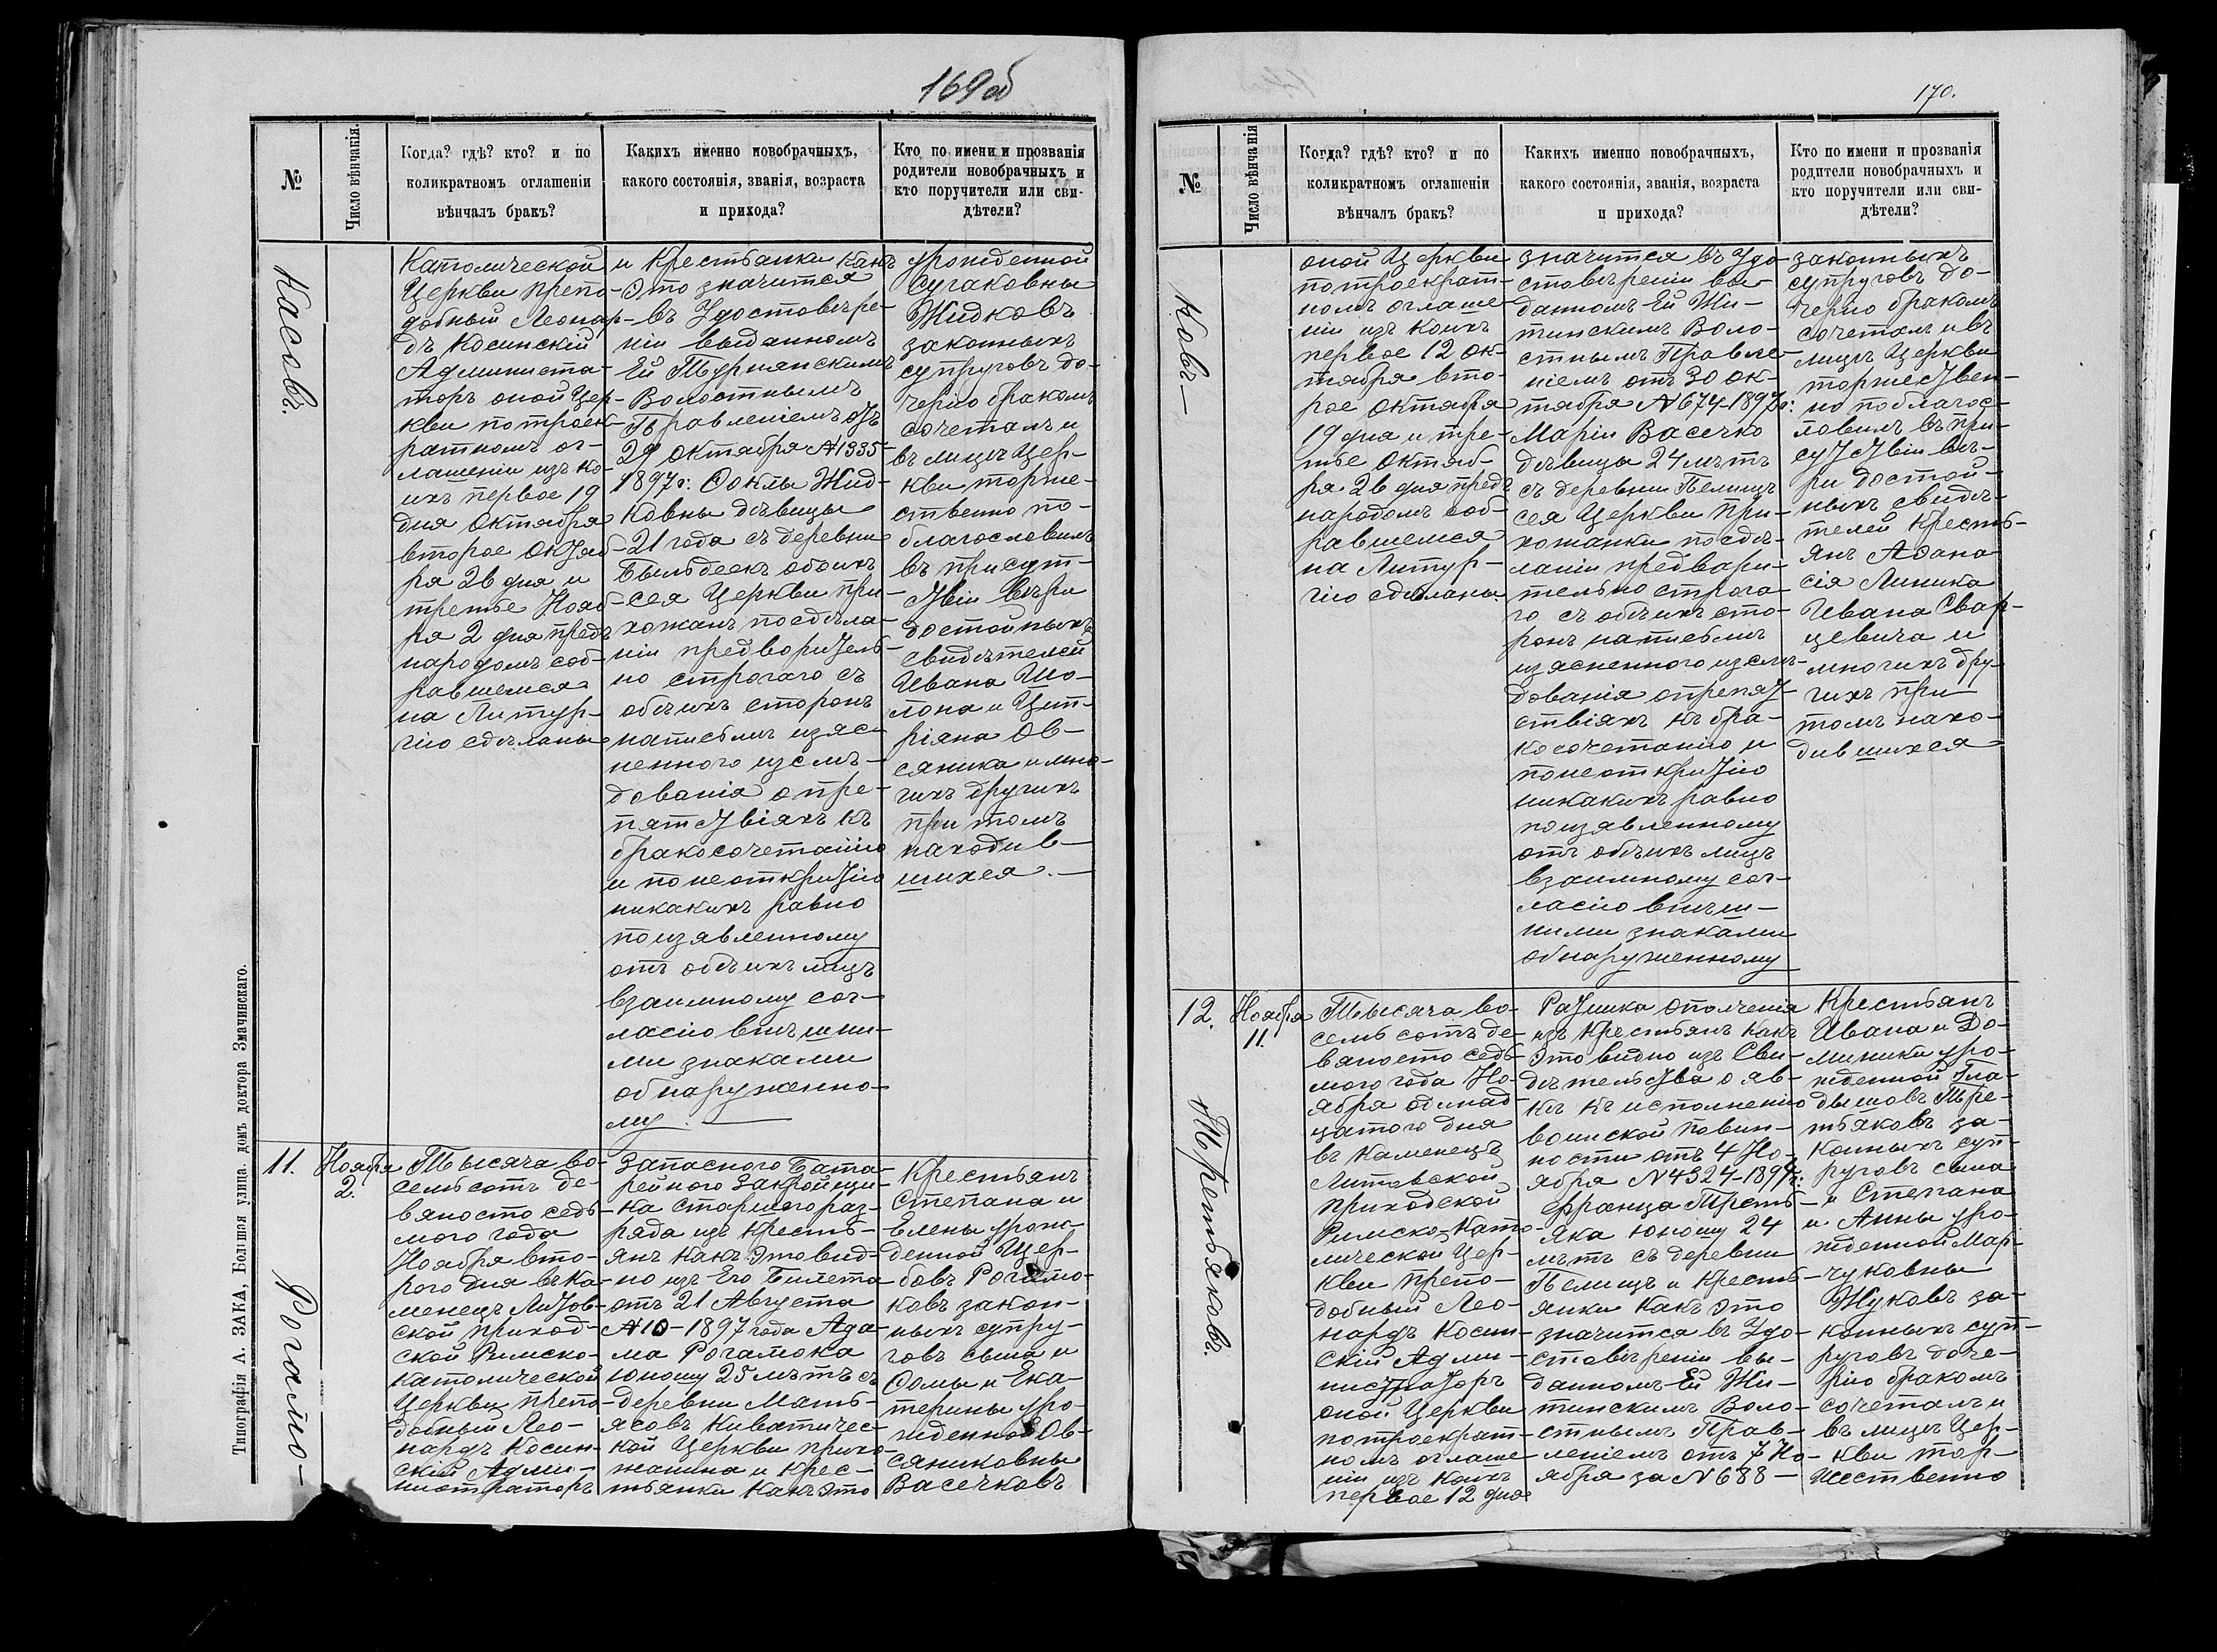 169об
№
Число вѣнчанія.
Когда? гдѣ? кто? и по
коликратномъ оглашеніи
вѣнчалъ бракъ?
Какихъ именно новобрачныхъ,
какого состоянія, званія, возраста
и прихода?
Кто по имени и прозванія
родители новобрачныхъ и
кто поручители или сви-
дѣтели?
касовъ.
Католической
Церкви препо-
добный Леонар-
дъ Косинскій
Администа-
торъ оной Цер-
кви по троек-
ратномъ ог-
лашеніи изъ ко-
ихъ первое 19
дня Октября
второе Октяб-
ря 26 дня и
третье Нояб-
ря 2 дня предъ
народомъ соб-
равшемся
на Литур-
гію сдѣланы
и Крестьянки какъ
это значится
въ Удостовѣре-
ніи выданномъ
Ей Турнянскимъ
Волостнымъ
Правленіемъ отъ
29 Октября №1335-
1897г: Ѳоклы Жид-
ковны дѣвицы
21 года съ деревни
обоихъ
сея Церкви при-
хожанъ по здѣла-
ніи предворитель-
но строгаго съ
обѣихъ сторонъ
написьмѣ изяс-
неннаго изслѣ-
дованія о пре-
пятствіяхъ къ
бракосочетанію
и по неоткритію
никакихъ равно
по изявленному
отъ обѣихъ лицъ
взаимному сог-
ласію внѣшни-
ми знаками
обнаруженно-
му.
урожденной
Сугаковны
Жидковъ
законныхъ
супруговъ до-
черію бракомъ
сочеталъ и
въ лицѣ Цер-
кви торже-
ственно по-
благословилъ
въ присут-
ствіи вѣри
достойныхъ
свидѣтелей
Ивана Шо-
лона и Цип-
ріяна Ов-
сяника и мно-
гихъ другихъ
при томъ
находив-
шихся.
11.
Ноября
2.
Рогалю-
Тысяча во-
семьсотъ де-
вяносто седь-
мого года
Ноября вто-
рого дня въ Ка-
менецъ Литов-
ской приход-
ской Римско-
Католической
Церкви препо-
добный Лео-
нардъ Косин-
скій Адми-
нистраторъ
Запасного Бата-
рейного Закройщи-
ка старшого раз-
ряда изъ кресть-
янъ какъ это вид-
но изъ Его Билета
отъ 21 Августа
№10-1897 года Ада-
ма Рогалюка
юношу 25 лѣтъ съ
деревни Мать-
ясовъ Киватичес-
кой Церкви прихо-
жанина и крес-
тьянки какъ это
Крестьянъ
Степана и
Елены урож-
денной Щер-
бовъ Рогалю-
ковъ закон-
ныхъ супру-
говъ сына и
Ѳомы и Ека-
терины уро-
жденной Ов-
сяниковны
Васечковъ
Типографія А. ЗАКА, Большая улица. домъ доктора Змачинскаго.
170.
№
Число вѣнчанія
Когда? гдѣ? кто? и по
коликратномъ оглашеніи
вѣнчалъ бракъ?
Какихъ именно новобрачныхъ,
какого состоянія, званія, возраста
и прихода?
Кто по имени и прозванія
родители новобрачныхъ и
кто поручители или сви-
дѣтели?
ковъ-
оной Церкви
по троекрат-
номъ оглаше-
ніи изъ коихъ
первое 12 Ок-
тября вто-
рое Октября
19 дня и тре-
тье Октяб-
ря 26 дня предъ
народомъ соб-
равшемся
на Литур-
гію сдѣланы.
значится въ Удо-
стовѣреніи вы-
данномъ Ей Жи-
тинскимъ Воло-
стнымъ Правле-
ніемъ отъ 30 Ок-
тября №674-1897г:
Маріи Васечко
дѣвицы 24 лѣтъ
съ деревни Пелищъ
сея Церкви при-
хожанки по здѣ-
ланіи предвари-
тельно строга-
го съ обѣихъ сто-
ронъ написьмѣ
изясненного изслѣ-
дованія о препят-
ствіяхъ къ бра-
косочетанію и
по неоткритію
никакихъ равно
по изявленному
отъ обѣихъ лицъ
взаимному сог-
ласію внѣш-
ними знаками
обнаруженному
законныхъ
супруговъ до-
черію бракомъ
сочеталъ и въ
лицѣ Церкви
торжествен-
но поблагос-
ловилъ въ при-
сутствіи вѣ-
ри достой-
ныхъ свидѣ-
телей Кресть-
янъ Аѳана
сія Линика
Ивана Свар-
цевича и
многихъ дру-
гихъ при
томъ нахо-
дившихся
12.
Ноября
11.
Третьяковъ.
Тысяча во-
семь сотъ де-
вяносто седь-
мого года Но-
ября одинад-
цатого дня
въ Каменецъ
Литовской
приходской
Римско-Като-
лической Цер-
кви препо-
добный Лео-
нардъ Косин-
скій Адми-
нистраторъ
оной Церкви
по троекрат-
номъ оглаше-
ніи изъ коихъ
первое 12 дня
Ратника ополченія
изъ Крестьянъ какъ
это видно изъ Сви-
дѣтельства о яв-
кѣ къ исполненію
воинской повин-
ности отъ 4 Но-
ября №4324-1894г:
Франца Треть-
яка юношу 24
лѣтъ съ деревни
Пелищъ и Кресть-
янки какъ это
значится въ Удо-
стовѣреніи вы-
данномъ Ей Жи-
тинскимъ Воло-
стнымъ Прав-
леніемъ отъ 7 Но-
ября за №688-
Крестьянъ
Ивана и До-
миники уро-
жденной Гла-
дышовъ Тре-
тьяковъ за-
конныхъ суп-
руговъ сына
и Степана
и Анны уро-
жденной Мар-
чуковны
Жуковъ за-
конныхъ суп-
руговъ доче-
рію бракомъ
сочеталъ и
въ лицѣ Цер-
кви тор-
жественно